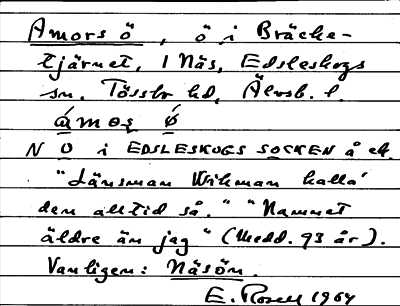 Amors ö, ö i Bräcke-
tjärnet, 1 Näs, Edsleskogs
sn. Tössbo hd, Älvsb. l.
ámos ǿ
N O i EDSLESKOGS SOCKEN å ek.
"Länsman Wikman kalla'
den alltid så." "Namnet
äldre än jag" (Medd. 93 år).
Vanligen: Näsön.
E. Rosell 1964